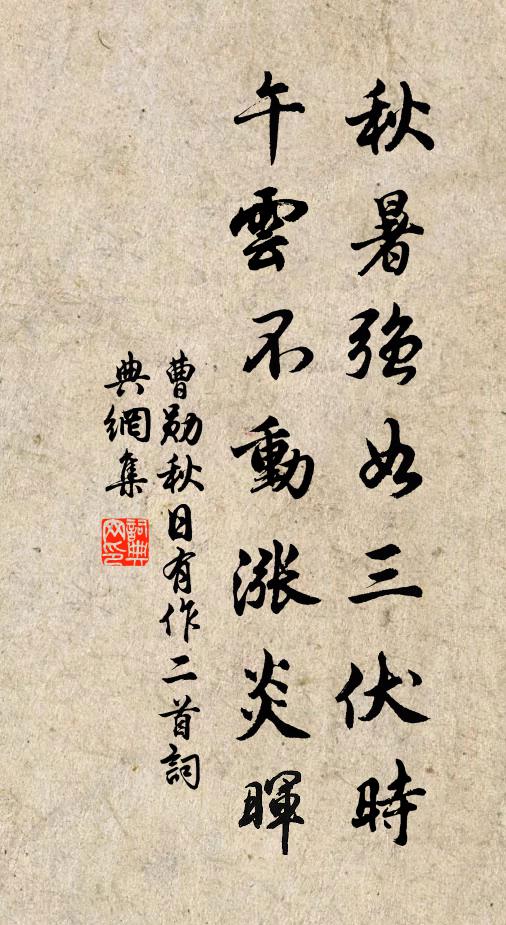 秋暑強如三伏時
午雲不動漲炎暉
曹勛秋日有作二首詞
典網集
詞典
网印